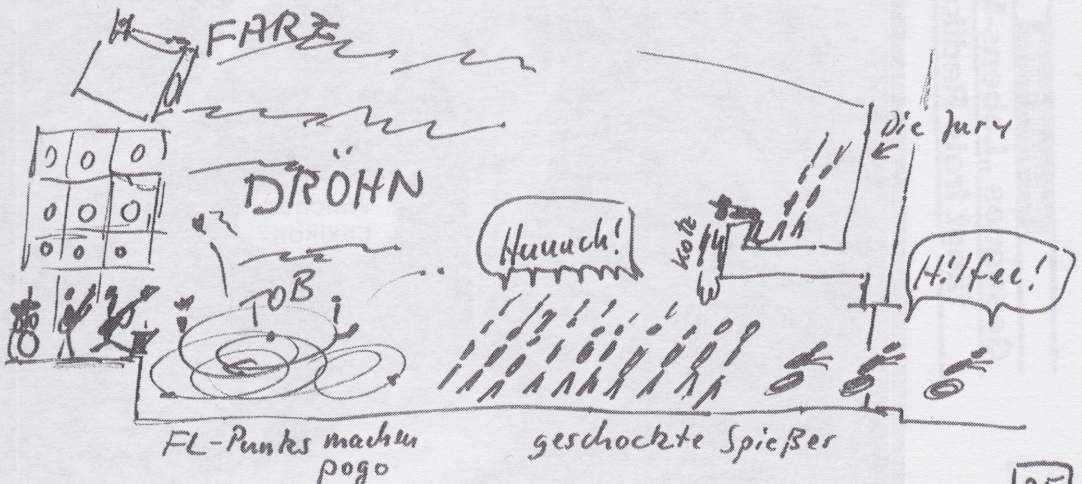 FARZ
Die Jury
DRÖHN
Huuuch!
Kotz
Hilfee!
TOB
FL-Punks machen
pogo
geschockte Spießer
25